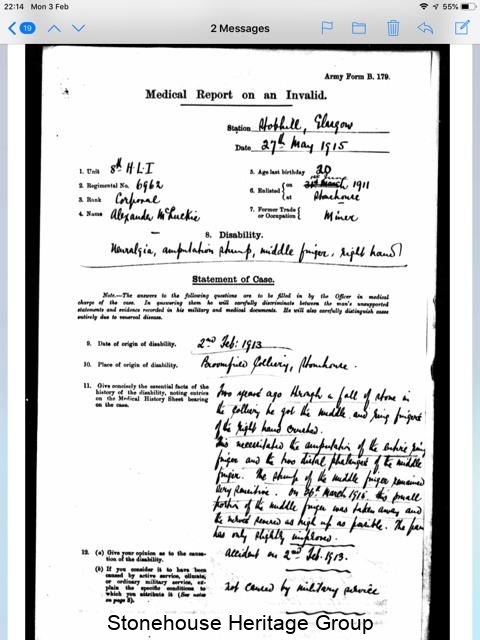 22:14 Mon 3 Feb
55%
19
2 Messages
Army Form B. 179.
Medical Report on an Invalid.
Station Stobhill, Glasgow
Date 27th May 1915
1. Unit 8th H.L.I
2. Regimental No. 6962
3. Rank Corporal
4. Name Alexander McLuckie
5. Age last birthday 20
6. Enlisted { on 1911
at Stonehouse
7. Former Trade or Occupation } Miner
8. Disability.
Neuralgia, amputation stump, middle finger, right hand
Statement of Case.
Note.—The answers to the following questions are to be filled in by the Officer in medical
charge of the case. In answering them he will carefully discriminate between the man's unsupported
statements and evidence recorded in his military and medical documents. He will also carefully distinguish cases
entirely due to venereal disease.
9. Date of origin of disability. 2nd Feb: 1913
10. Place of origin of disability. Broomfield Colliery, Stonehouse.
11. Give concisely the essential facts of the
history of the disability, noting entries
on the Medical History Sheet bearing
on the case.
Two years ago through a fall of stone in
the colliery he got the middle and ring fingers
of the right hand crushed.
This necessitated the amputation of the entire ring
finger and the two distal phalanges of the middle
finger. The stump of the middle finger remained
very sensitive. On March 1915 this small
portion of the middle finger was taken away and
the nerves severed as high up as possible. The pain
has only slightly improved.
12. (a) Give your opinion as to the causation of the disability.
accident on 2nd Feb. 1913.
(b) If you consider it to have been
caused by active service, climate,
or ordinary military service, explain the specific conditions to
which you attribute it (See notes
on page 3).
not caused by military service
Stonehouse Heritage Group